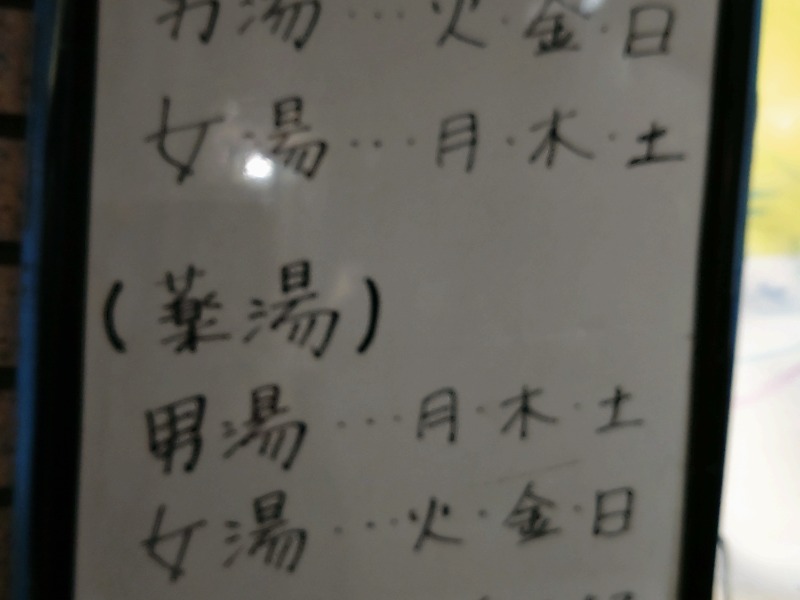 男湯…火・金・日
女湯…月・木・土
(薬湯)
男湯…月・木・土
女湯…火・金・日